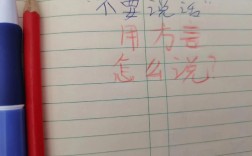 "不要说话"
用方言
怎么说?